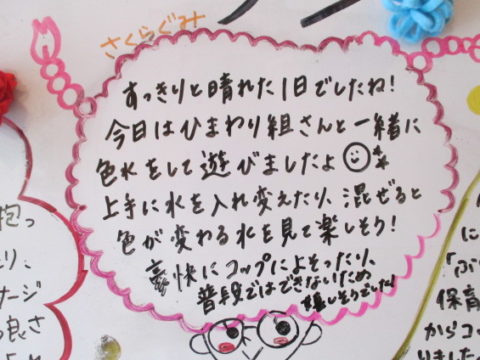 さくらぐみ
すっきりと晴れた1日でしたね!
今日はひまわり組さんと一緒に
色水をして遊びましたよ
上手に水を入れ変えたり、混ぜると
色が変わる水を見て楽しそう!
豪快にコップによそったり、
普段ではできないため
嬉しそうでした
抱っ
たり、
ージ
良さ
に
「ぶ
保育
からコッ
いました